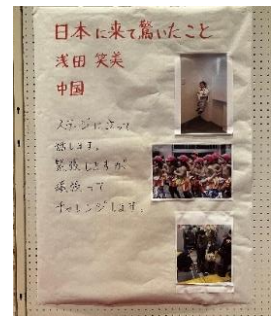 日本に来て驚いたこと
浅田 笑美
中国
ステージに立って
話します。
緊張しますが
頑張って
チャレンジします。